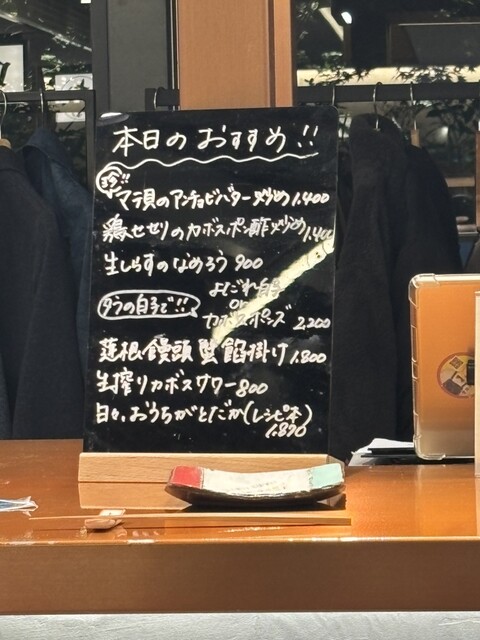 本日のおすすめ!!
珍!!
マテ貝のアンチョビバター炒め 1.400
鶏セセリのカボスポン酢炒め 1.400
生しらすのなめろう 900
タラの白子で!! よだれ白子
or
カボスポンズ 2,200
蓮根饅頭 蟹餡掛け 1.800
生搾りカボスサワー 800
日々、おうちがとだか(レシピ本)
1.870